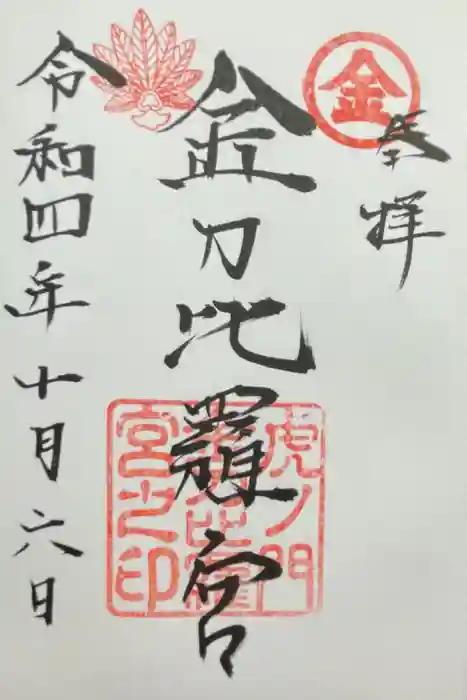 奉拝
金
金刀比羅宮
虎ノ門
金刀比羅
宮之印
令和四年十月六日